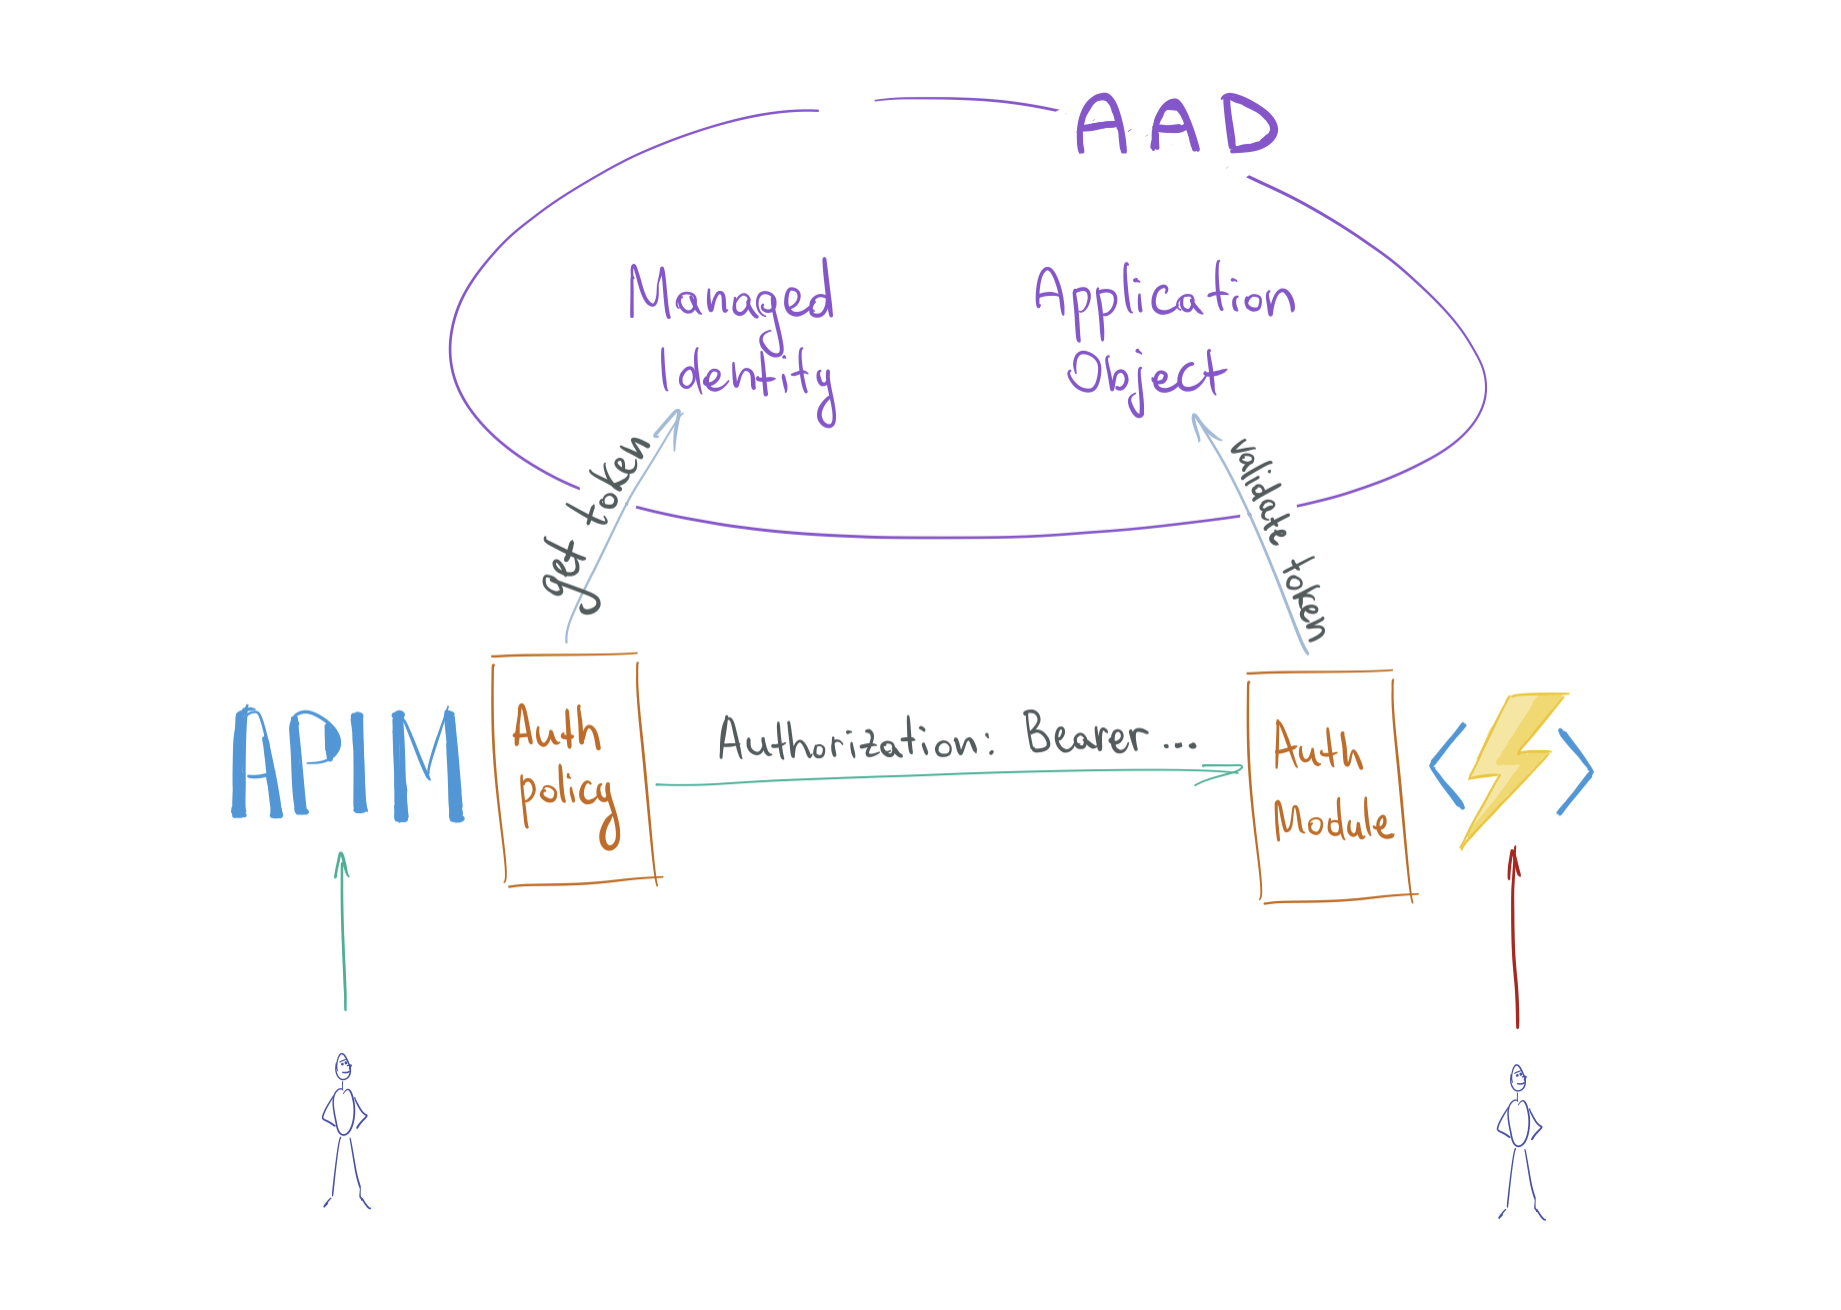 AAD
Managed
Identity
Application
Object
get token
validate token
APIM
Auth
policy
Authorization: Bearer ...
Auth
Module